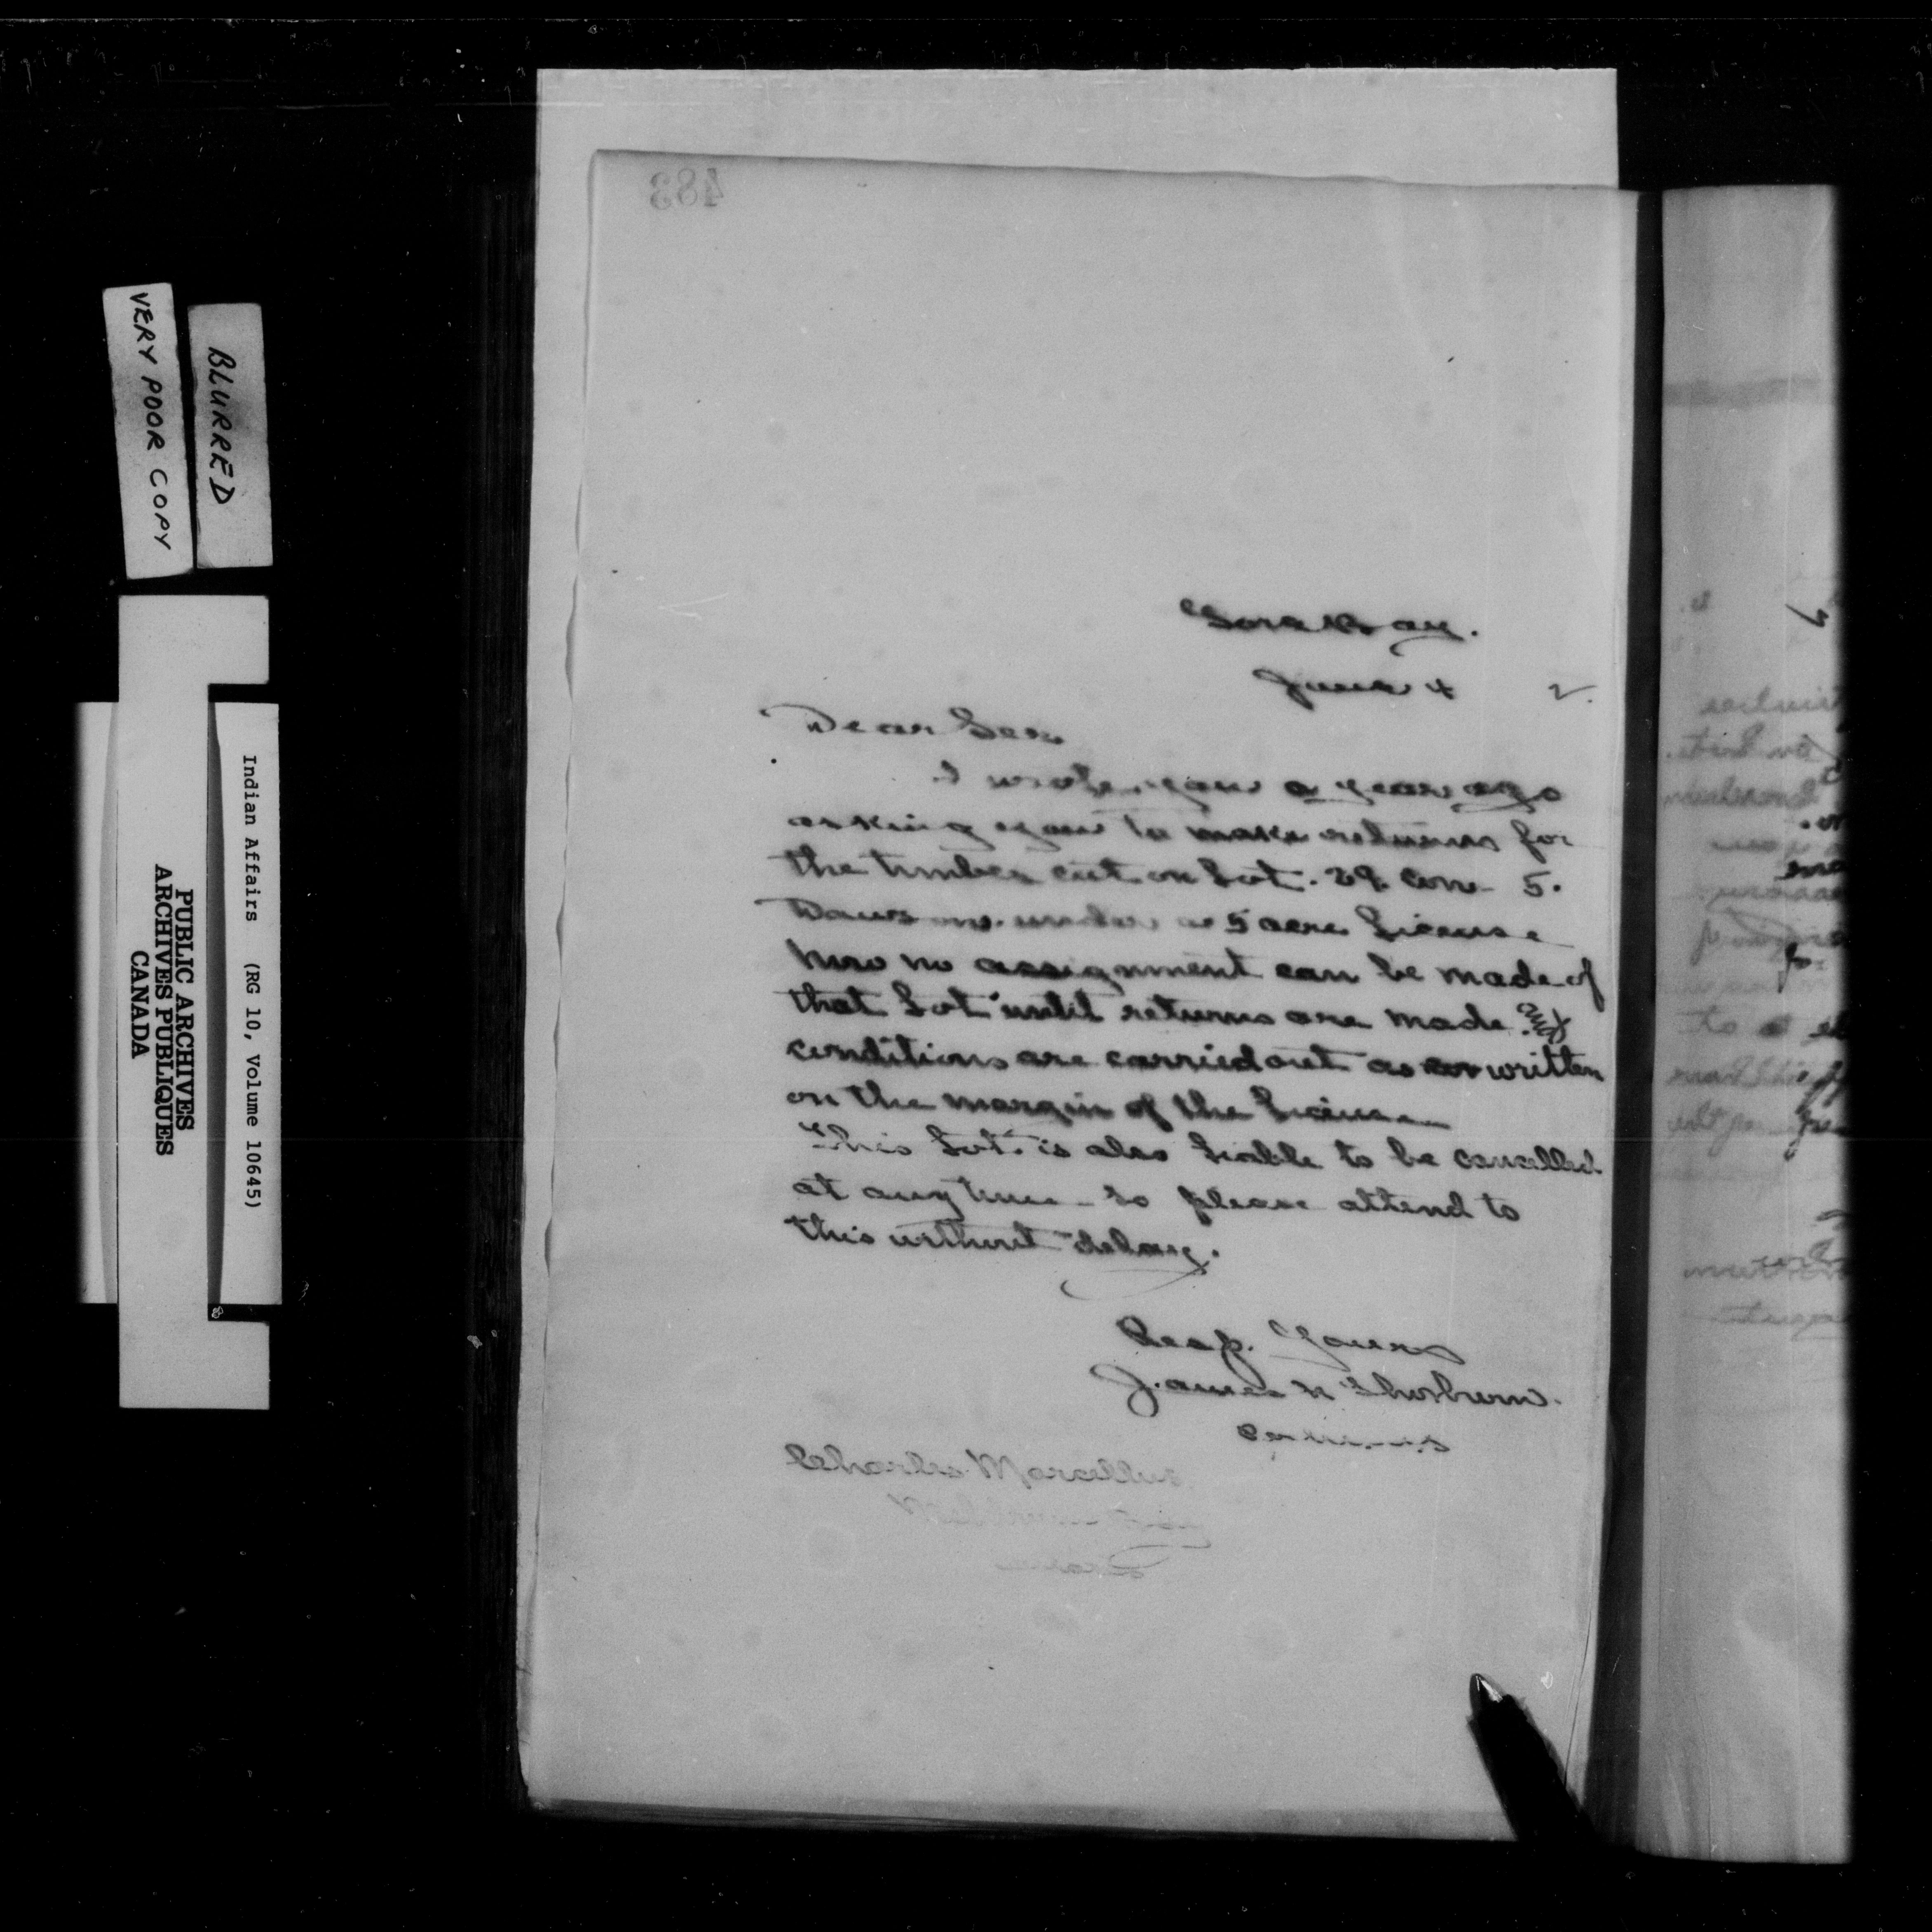 483
Gore Bay.
June 4 2.
Dear Sir
I wrote you a year ago
asking you to make returns for
the timber cut on Lot. 29. Con. 5.
Dawson. under a 5 acre License
now no assignment can be made of
that Lot until returns are made &
conditions are carried out as written
on the margin of the License
This Lot. is also liable to be cancelled
at any time - so please attend to
this without delay.
Resp. Yours
James H Thorburn.
Charles Marcellus
VERY POOR COPY
BLURRED
Indian Affairs (RG 10, Volume 10645)
PUBLIC ARCHIVES
ARCHIVES PUBLIQUES
CANADA